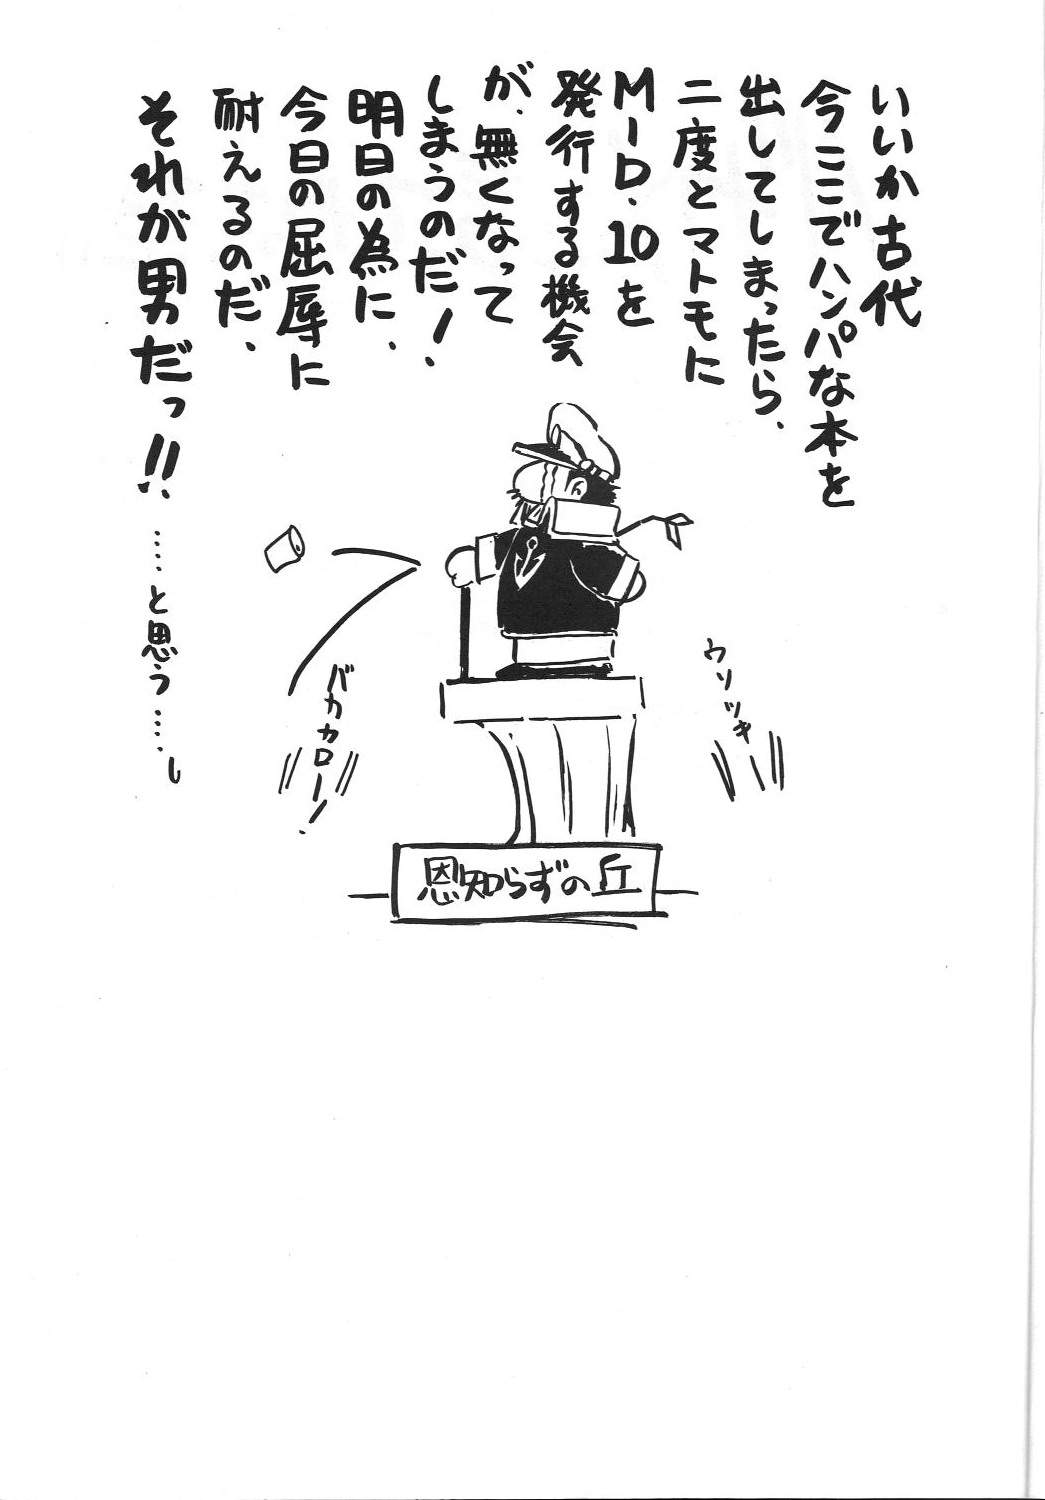 いいか古代
今ここでハンパな本を
出してしまったら、
二度とマトモに
M-D.10を
発行する機会
が、無くなって
しまうのだ!、
明日の為に、
今日の屈辱に
耐えるのだ、
それが男だっ!!
……と思う….し
ウソツキー
バカカロー!
恩知らずの丘